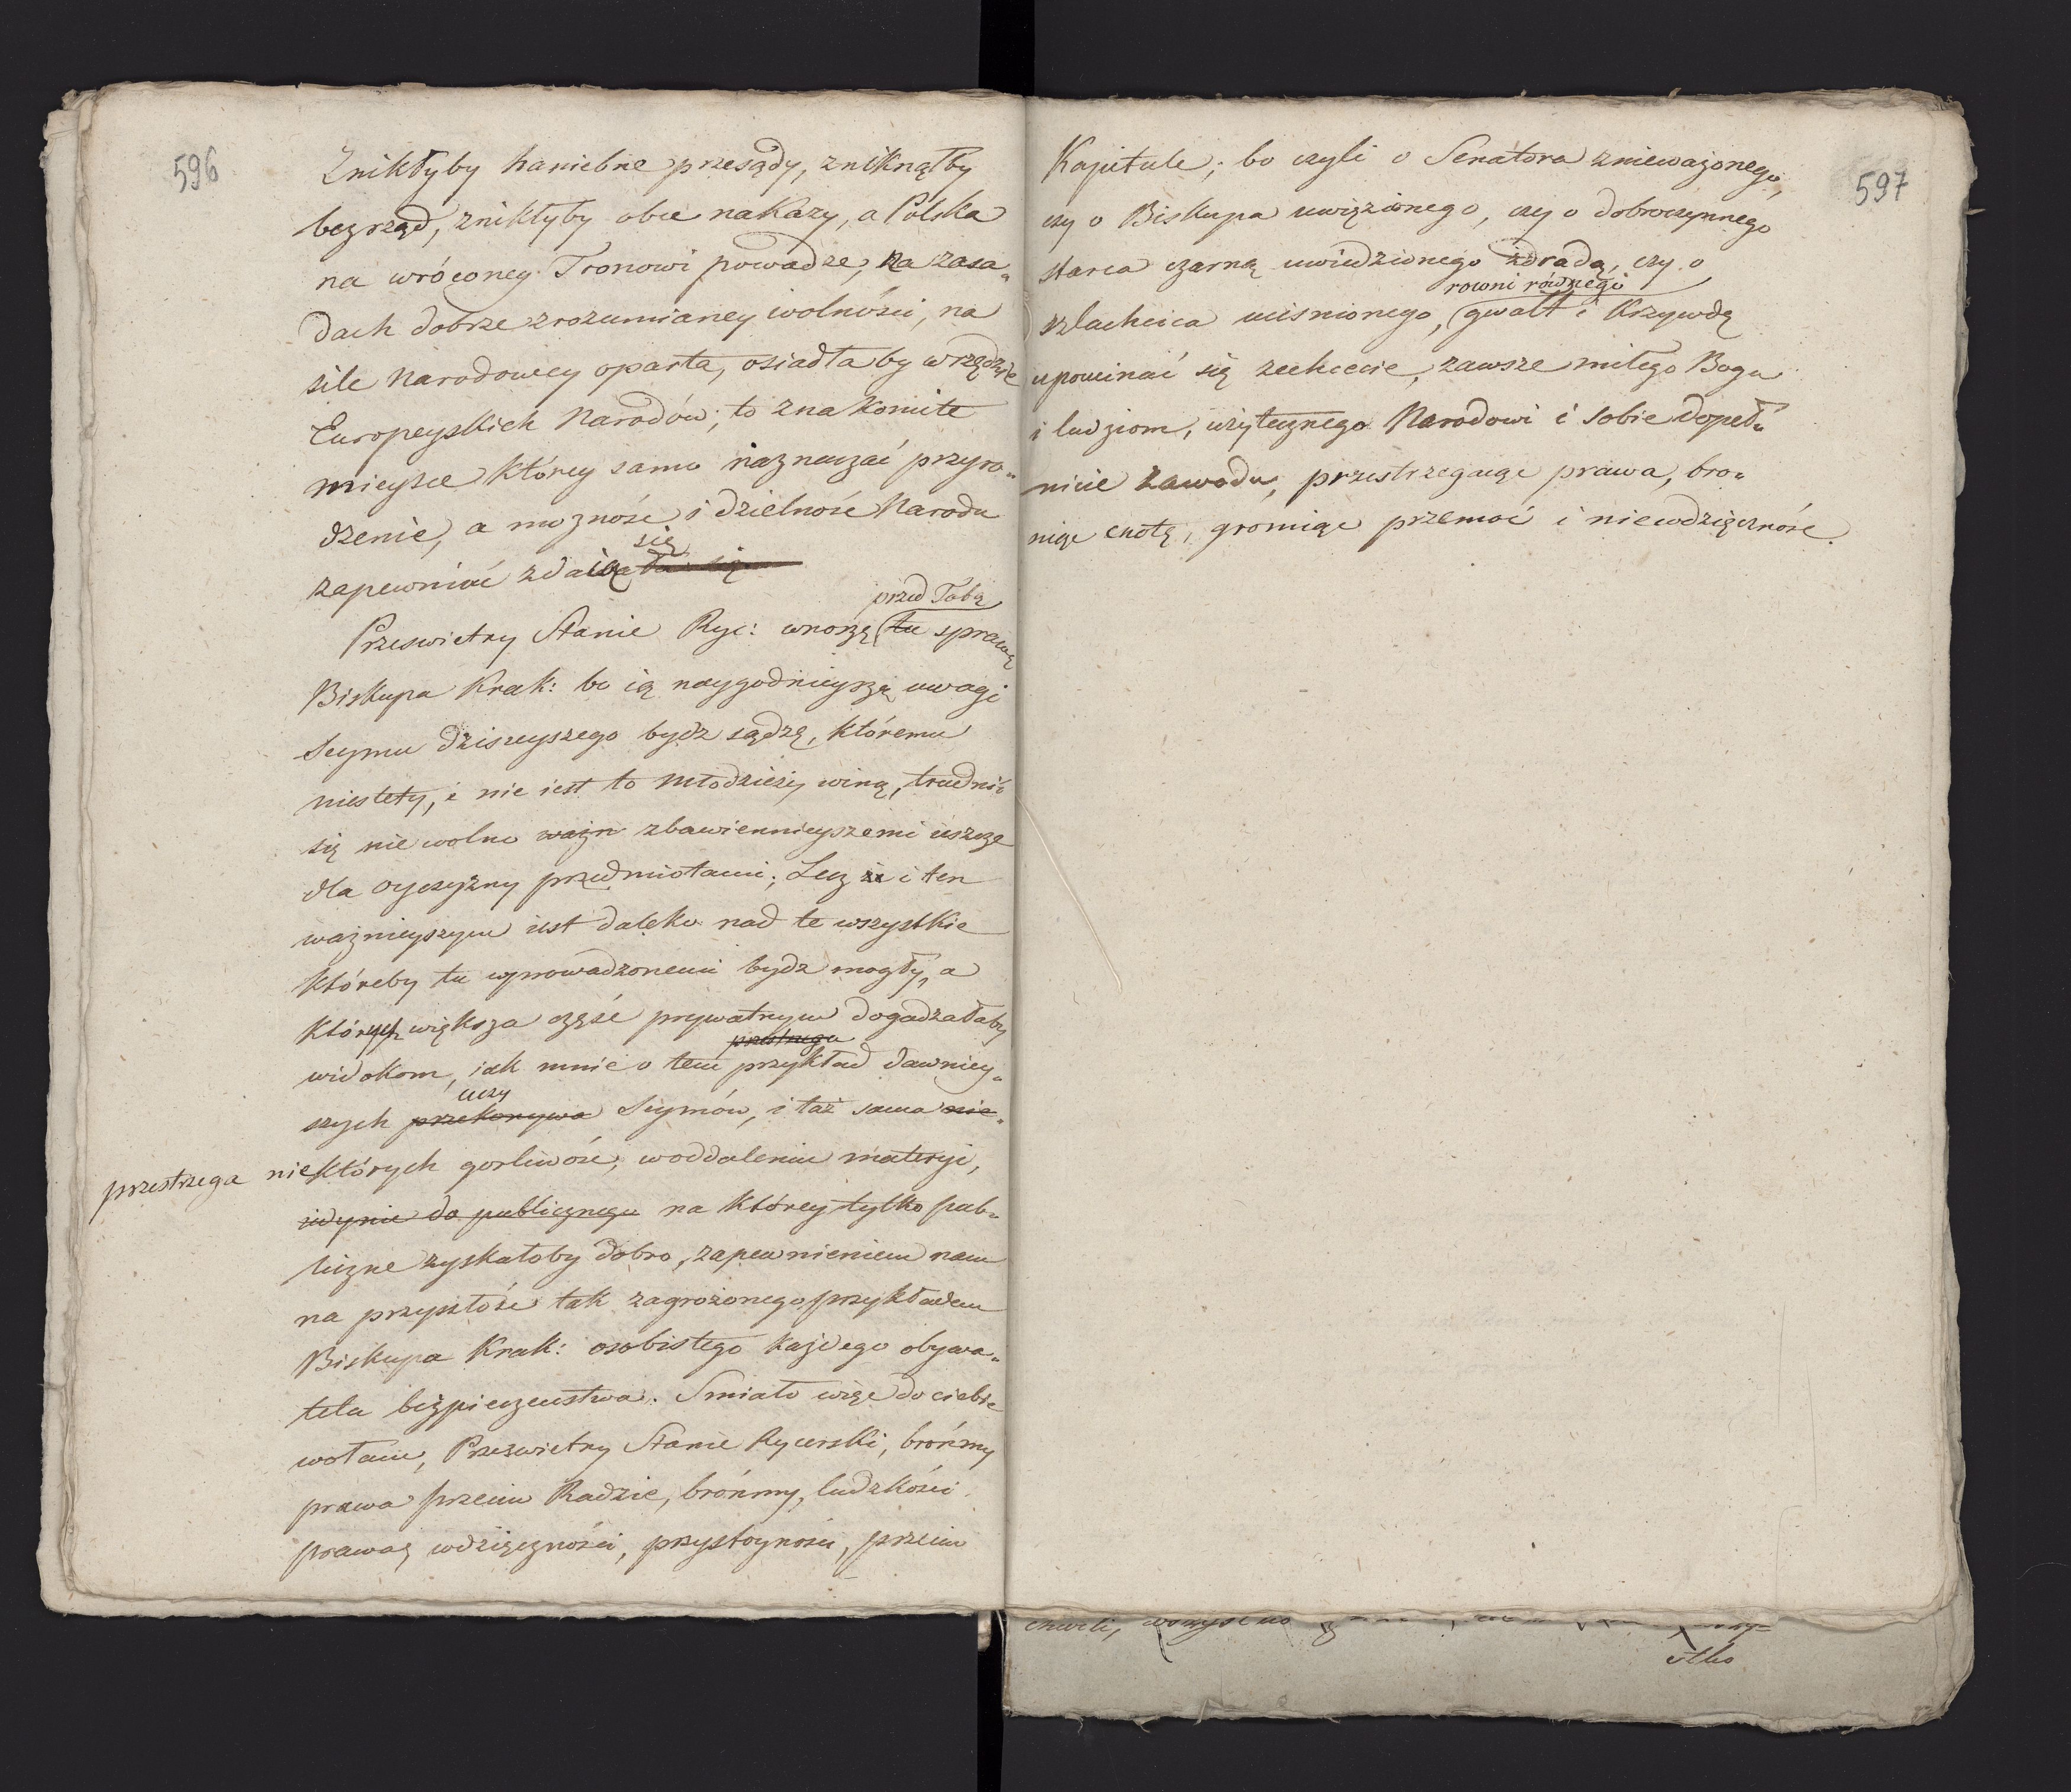 596
Znikłyby haniebne przesądy, zniknąłby
bezrząd, znikłyby obce nakazy, a Polska
na wróconey Tronowi powadze, na zasa„
dach dobrze zrozumianey wolności, na
sile Narodowey oparta, osiadłaby w rzędzie
Europeyskich Narodów; to znakomite
mieysce którey samo naznaczać przyro„
dzenie, a możność i dzielność Narodu
się
zapewniać zdaią
przed Tobą
Przeswietny Stanie Ryc: wnoszę tu sprawę
Biskupa Krak: bo ią naygodnieyszą uwagi
Seymu dzisieyszego bydz sądzę, któremu
niestety, i nie iest to Młodzieży winą, trudnić
się nie wolno ważn zbawiennieyszemi ieszcze
dla oyczyzny przedmiotami; Lecz że i ten
ważnieyszym iest daleko nad te wszystkie
któreby tu wprowadzonemi bydz mogły, a
których większa część prywatnym dogadzałaby
przestrzega
widokom, iak mnie o tem przykład dawniey„
uczy
szych przekonywa Seymów, i taż sama nie„
przestrzega niektórych gorliwość, w oddaleniu materyi,
iedynie do publicznego na którey tylko pub„
liczne zyskałoby dobro, zapewnieniem nam
na przyszłość tak zagrożonego przykładem
Biskupa Krak: osobistego każdego obywa„
tela bezpieczeństwa. Smiało więc do ciebie
wołam, Przeswietny Stanie Rycerski, brońmy
prawa przeciw Radzie, brońmy, ludzkości
prawa, wdzięczności, przystoyności, przeciw
597
Kapitule; bo czyli o Senatora znieważonego,
czy o Biskupa uwięzionego, czy o dobroczynnego
starca czarną uwiedzionego zdradą, czy o
rowni równego
szlachcica uciśnionego, gwałt i krzywdę
upominać się zechcecie, zawsze miłego Bogu
i ludziom, użytecznego Narodowi i sobie dopeł„
nicie zawodu, przestrzegaiąc prawa, bro„
niąc cnotę, gromiąc przemoc i niewdzięczność.
chwili,
stko